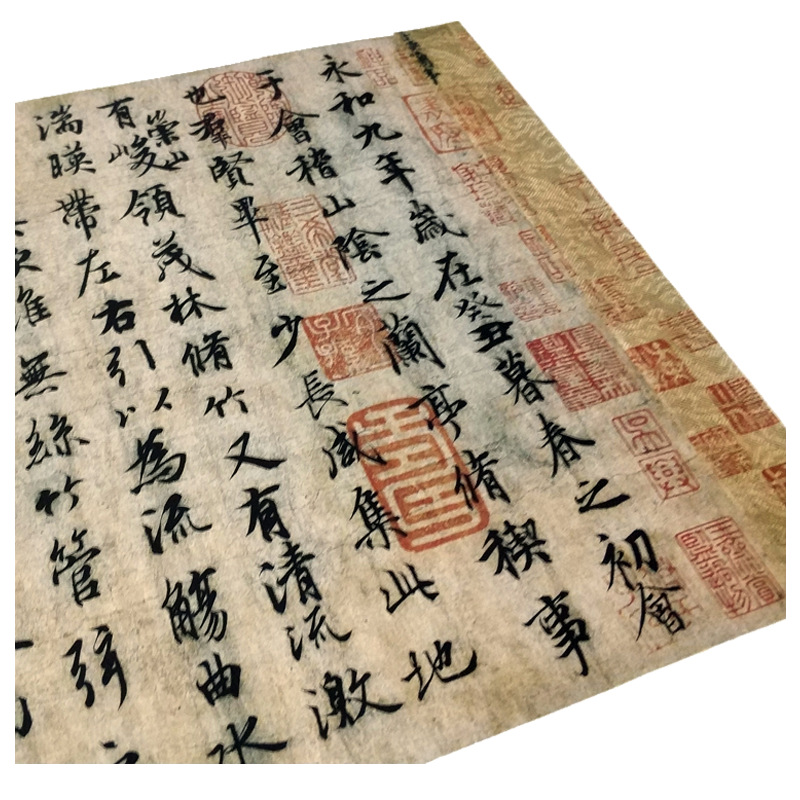 永和九年歲在癸丑暮春之初會
于會稽山陰之蘭亭脩稧事
也羣賢畢至少長咸集此地
有崇山峻領茂林脩竹又有清流激
湍暎帶左右引以為流觴曲水
次雖無絲竹管弦之